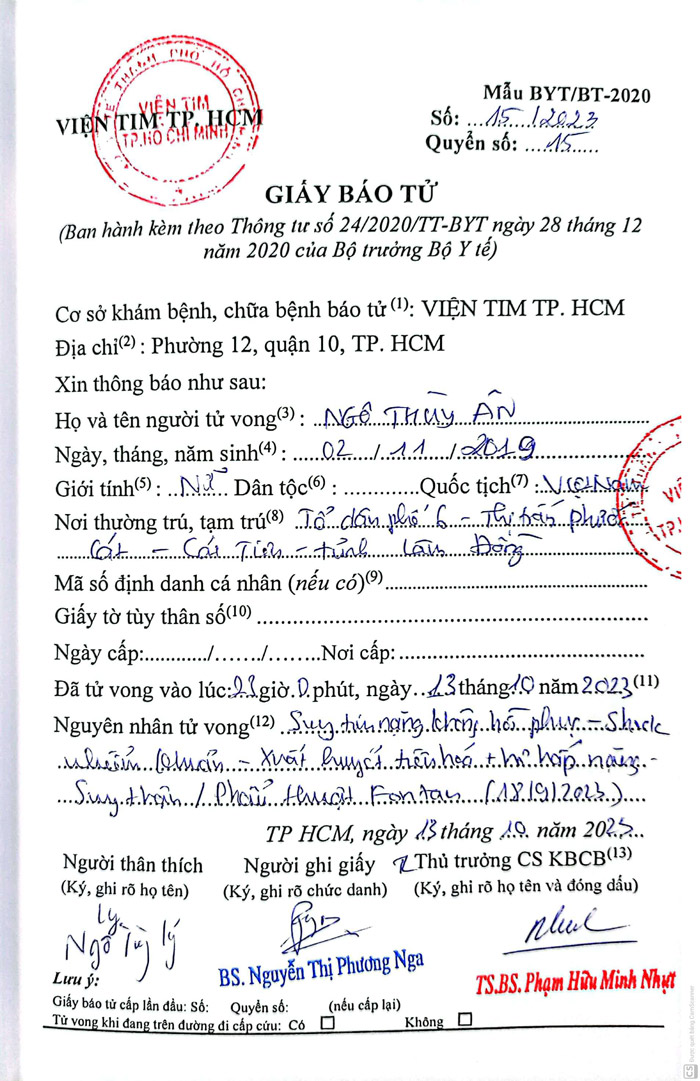 VIỆN TIM TP. HCM
VIỆN TIM
TP.HỒ CHÍ MINH
Mẫu BYT/BT-2020
Số: ....15.../2023
Quyển số: .....15......
GIẤY BÁO TỬ
(Ban hành kèm theo Thông tư số 24/2020/TT-BYT ngày 28 tháng 12
năm 2020 của Bộ trưởng Bộ Y tế)
Cơ sở khám bệnh, chữa bệnh báo tử (1): VIỆN TIM TP. HCM
Địa chỉ(2) : Phường 12, quận 10, TP. HCM
Xin thông báo như sau:
Họ và tên người tử vong(3) : NGÔ THÙY ÂN
Ngày, tháng, năm sinh(4) : 02 / 11 / 2019
Giới tính(5) : Nữ Dân tộc(6) : ............Quốc tịch(7) : VIỆT NAM
Nơi thường trú, tạm trú(8) Tổ dân phố 6 - Thị trấn Phước
Cát - Cát Tiên - tỉnh Lâm Đồng
Mã số định danh cá nhân (nếu có)(9)
Giấy tờ tùy thân số(10)
Ngày cấp:.........../......./........Nơi cấp:
Đã tử vong vào lúc: giờ 0 phút, ngày 13 tháng 10 năm 2023 (11)
Nguyên nhân tử vong(12) Suy tim nặng không hồi phục - Shock
nhiễm khuẩn - Xuất huyết tiêu hoá + hô hấp nặng -
Suy thận / Phẫu thuật Fontan (18/9/2023)
TP HCM, ngày 13 tháng 10 năm 2023
Người thân thích Người ghi giấy Thủ trưởng CS KBCB(13)
(Ký, ghi rõ họ tên) (Ký, ghi rõ chức danh) (Ký, ghi rõ họ tên và đóng dấu)
Lý
Ngô Tùy Lý
BS. Nguyễn Thị Phương Nga
TS.BS. Phạm Hữu Minh Nhựt
Lưu ý:
Giấy báo tử cấp lần đầu: Số: Quyển số: (nếu cấp lại)
Tử vong khi đang trên đường đi cấp cứu: Có Không
CS Được quét bằng CamScanner